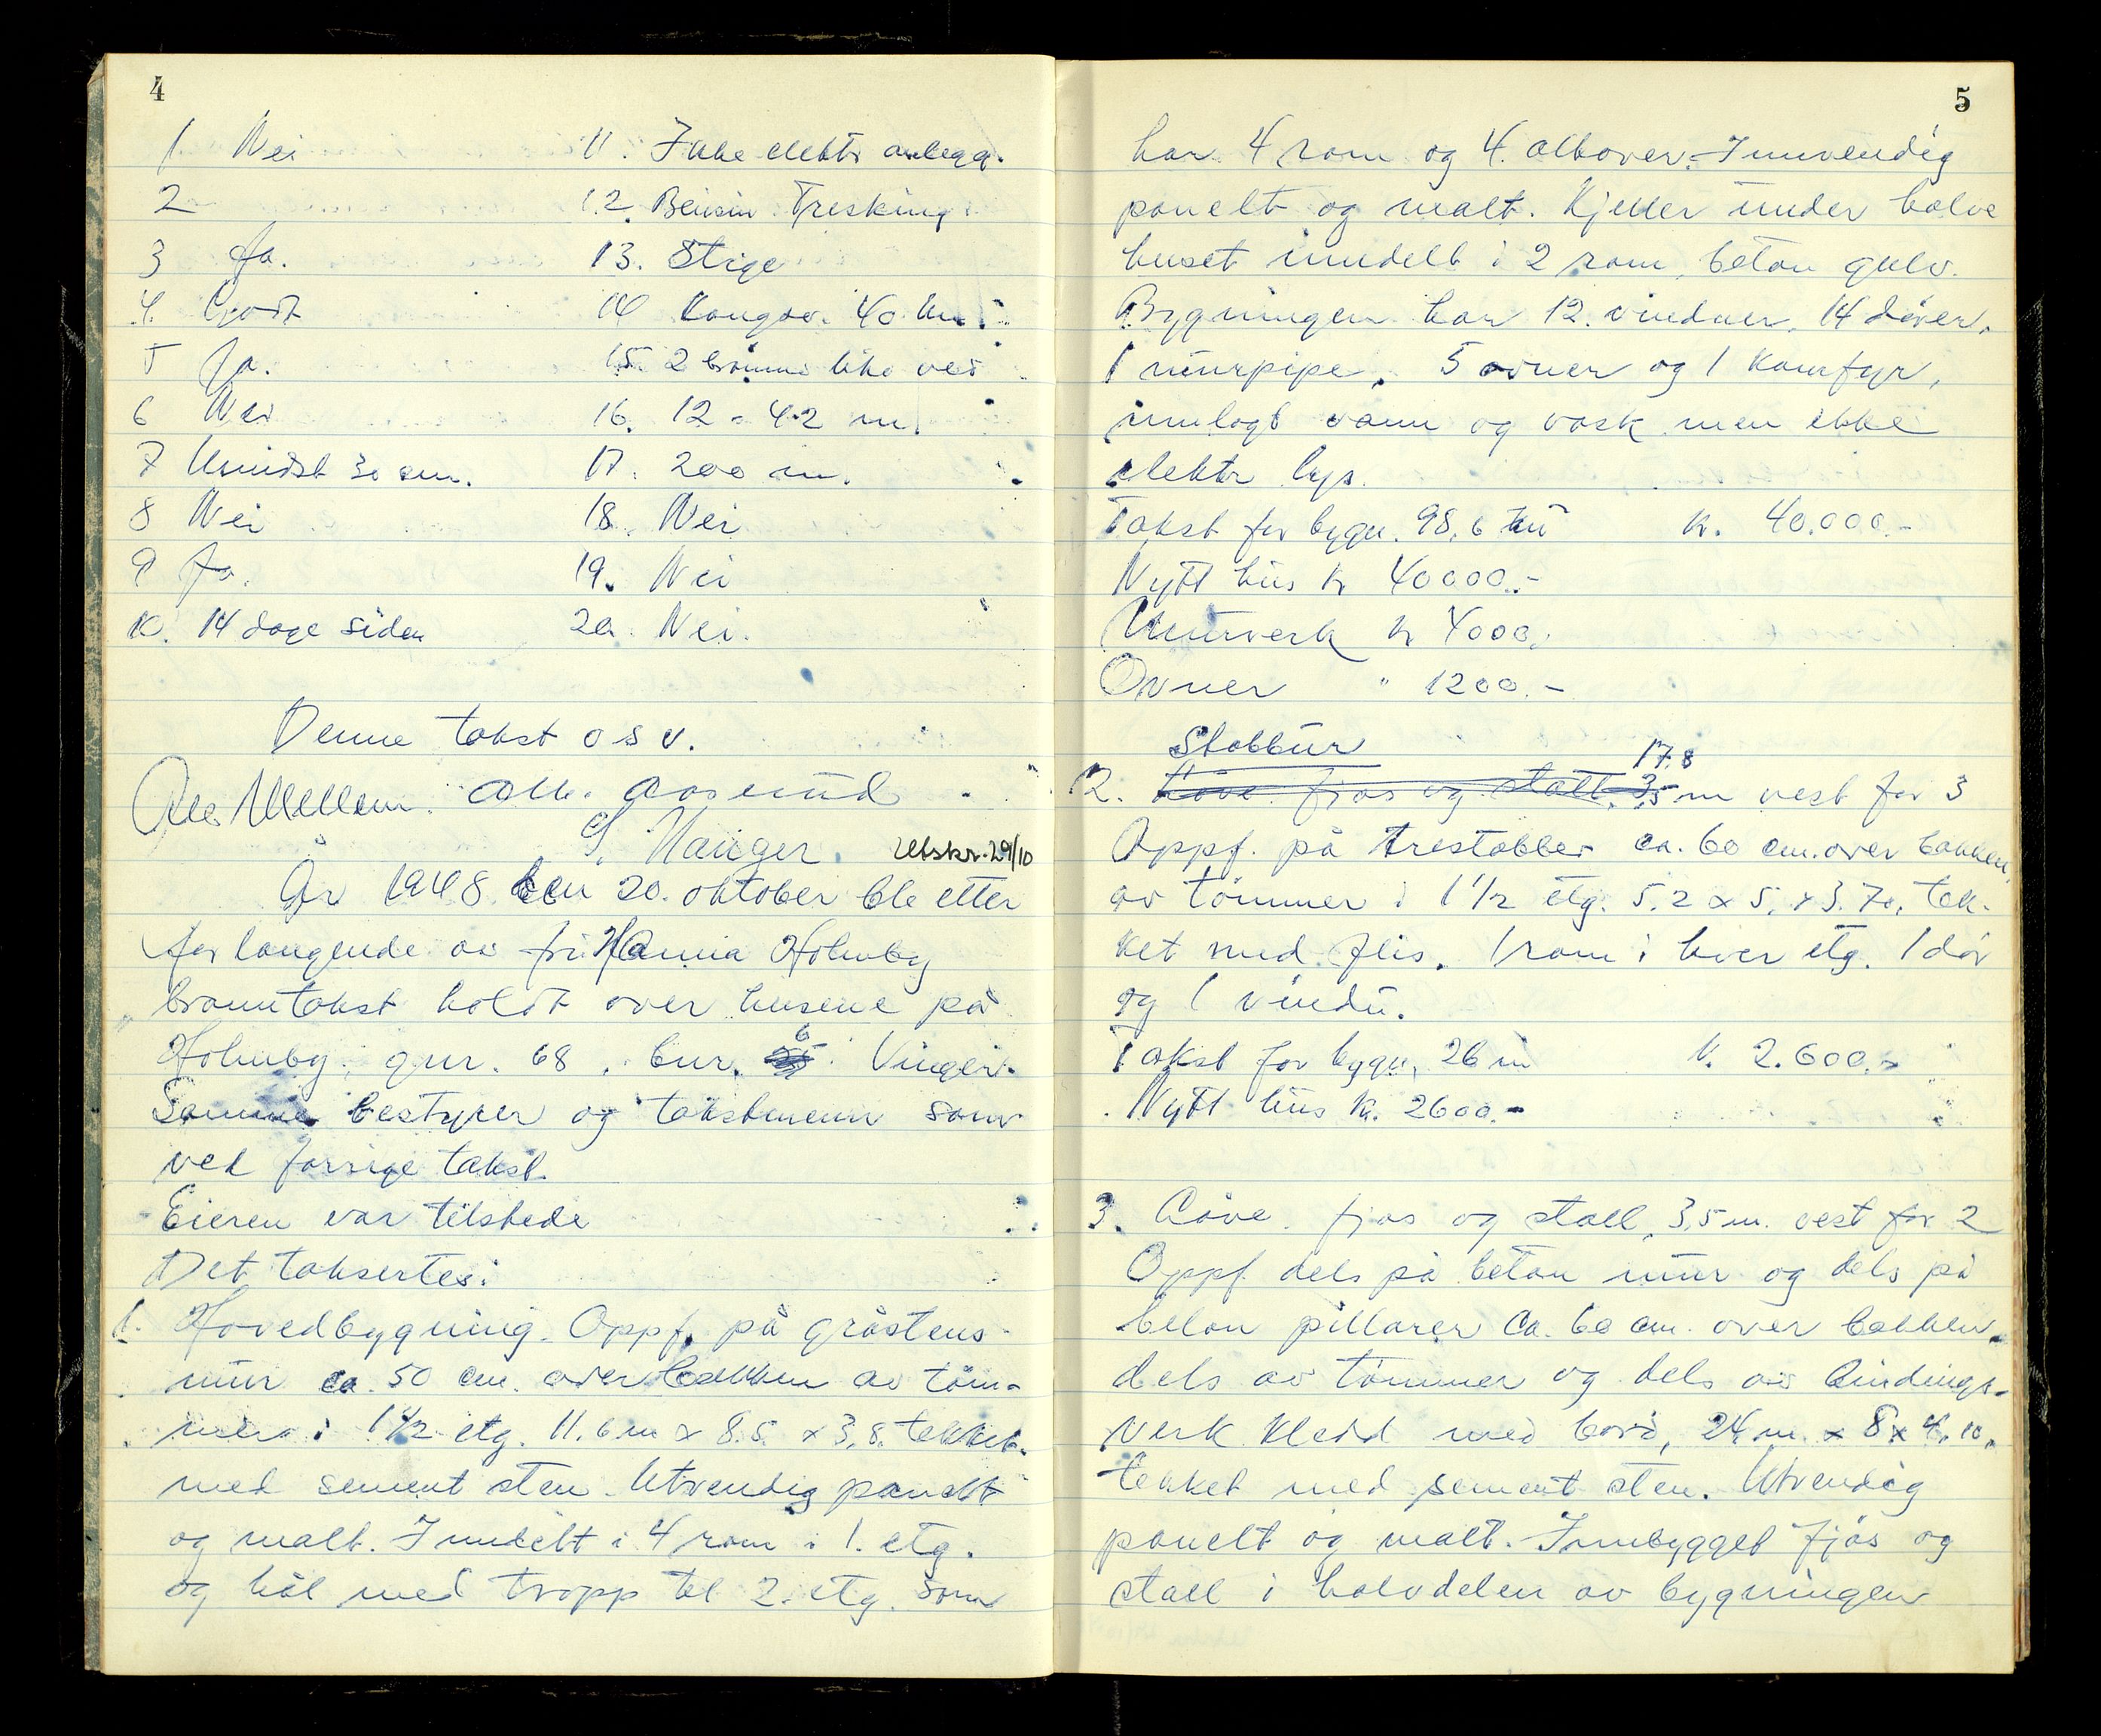 4
1 Nei
2
3 Ja.
4. Godt
5 Ja.
6 Nei
7 Minst 30 cm.
8 Nei
9 Ja.
10. 14 dage siden
11. Ikke elektr anlegg.
12. Bensin Tresking
13. Stige
14 Kongsv. 40 km.
15. 2 brønner like ved
16. 12 - 42 m.
17. 200 m.
18. Nei
19. Nei
20. Nei.
Denne takst o s v.
Ole Mellem. Alb. Aaserud
S. Hauger. Utskr. 29/10
År 1948 den 20. oktober ble etter
forlangende av fru Hanna Holmby
branntakst holdt over husene på
Holmby, gnr. 68, bnr. 6 i Vinger.
Samme bestyrer og takstmenn som
ved forrige takst.
Eieren var tilstede
Det taksertes:
1. Hovedbygning. Oppf. på gråstens-
mur ca. 50 cm. over bakken av tøm-
mer i 1 1/2 etg. 11.6 m x 8.5 x 3,8. tekket
med sement sten. Utvendig panelt
og malt. Inndelt i 4 rom i 1. etg.
og hål med tropp til 2. etg. som
5
har 4 rom og 4. alkover. Innvendig
panelt og malt. Kjeller under halve
huset inndelt i 2 rom, beton gulv.
Bygningen har 12. vinduer, 14 dører,
1 murpipe, 5 ovner og 1 komfyr,
innlagt vann og vask men ikke
elektr lys.
Takst for bygn. 98,6 m k. 40.000.-
Nytt hus k 40000.-
Murverk k 4000.
Ovner " 1200.-
Stabbur 17.8
2. Låve fjøs og stall. 3,5 m vest for 3
Oppf. på trestabber ca. 60 cm. over bakken,
av tømmer i 1 1/2 etg. 5.2 x 5. x 3.70, tek-
ket med flis. 1 rom i hver etg. 1 dør
og 1 vindu.
Takst for bygn. 26 m k. 2.600.-
Nytt hus k. 2600.-
3. Låve. fjøs og stall, 3,5 m. vest for 2
Oppf. dels på beton mur og dels på
beton pillarer ca. 60 cm. over bakken.
dels av tømmer og dels av bindings-
verk kledd med bord, 24 m. x 8 x 4.10,
tekket med sement sten. Utvendig
panelt og malt. Innbygget fjøs og
stall i halvdelen av bygningen